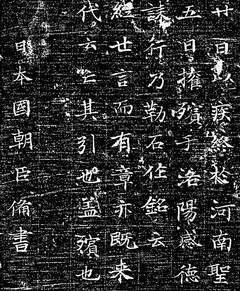 廿日以疾終於河南聖
五日權殯于洛陽感德
誄行乃勒石作銘云
經世言而有章亦既來
代云亡其引也蓋殯也
日本國朝臣備書